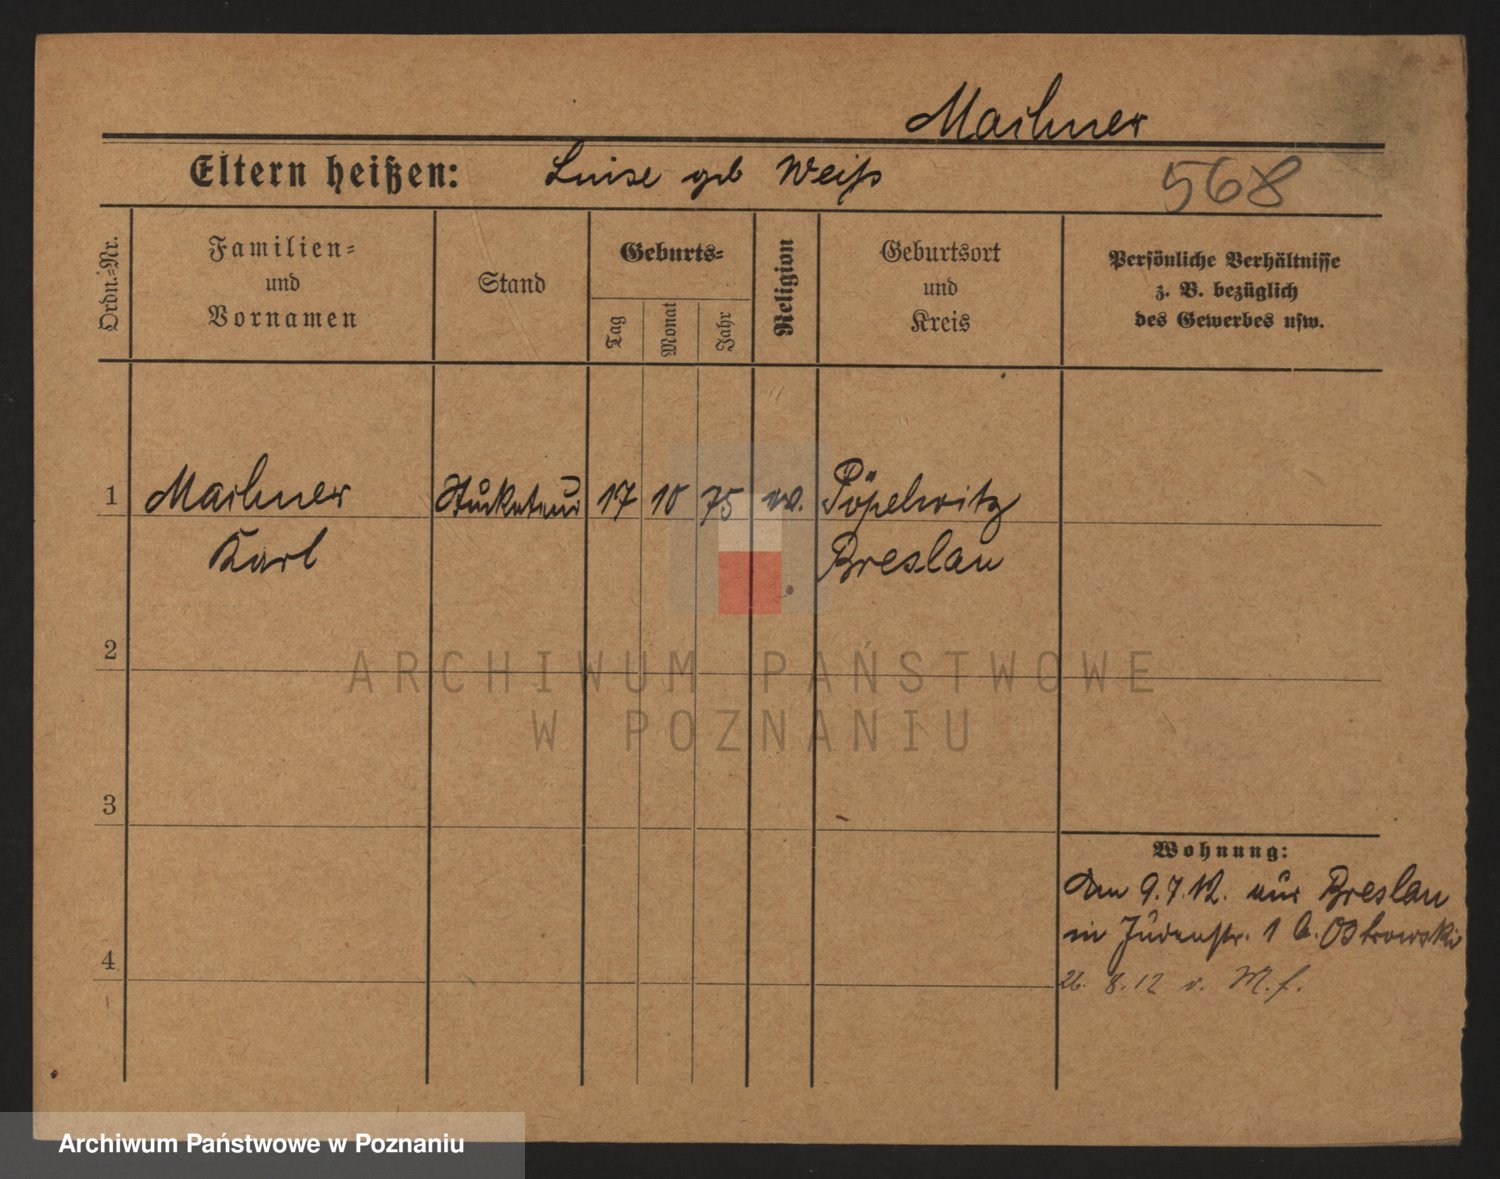 Maihner
Eltern heißen: Luise geb Weiß
568
Ordn.=Nr.
Familien=
und
Vornamen
Stand
Geburts=
Tag
Monat
Jahr
Religion
Geburtsort
und
Kreis
Persönliche Verhältnisse
z. B. bezüglich
des Gewerbes usw.
1 Maihner Stukateur 17 10 75 ev. Pöpelwitz
Karl Breslau
2
3
4
Wohnung:
Am 9.7.12. aus Breslau
in Judenstr. 1 b. Ostrowski
26. 8.12 v. M. f.
ARCHIWUM PAŃSTWOWE
W POZNANIU
Archiwum Państwowe w Poznaniu